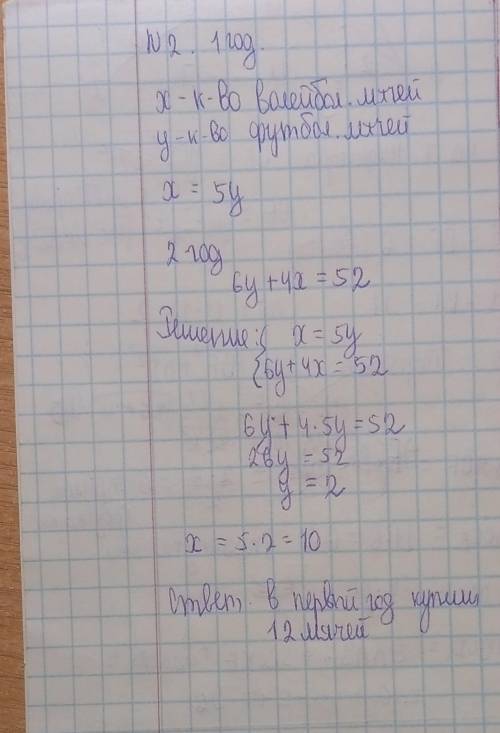 N2. 1 год.
х - к-во волейбол. мячей
у - к-во футбол. мячей
х = 5у
2 год
6у + 4х = 52
Решение: { х = 5у
{ 6у + 4х = 52
6у + 4·5у = 52
26у = 52
у = 2
х = 5·2 = 10
Ответ. в первый год купили
12 мячей